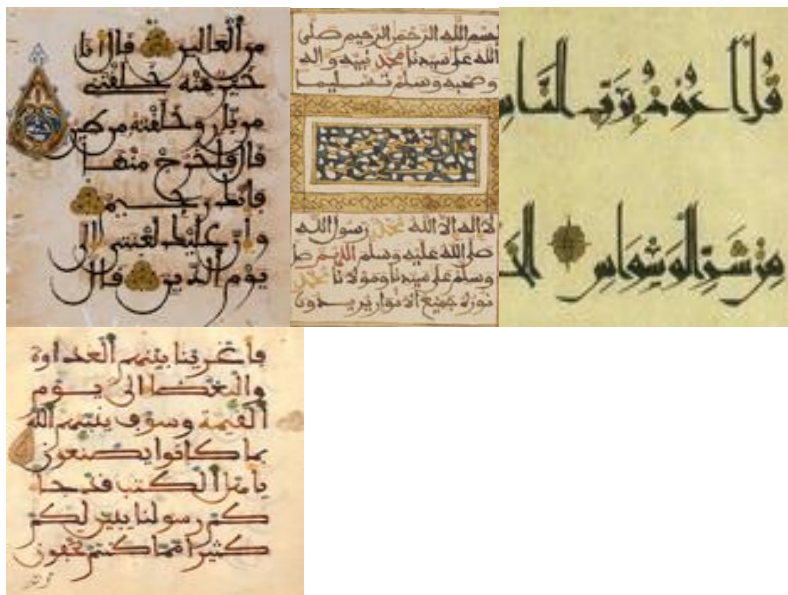 من العالين قال أنا
خير منه خلقتني
من نار وخلقته من طين
قال فاخرج منها
فإنك رجيم
وإن عليك لعنتي إلى
يوم الدين قال
بسم الله الرحمن الرحيم صلى
الله على سيدنا محمد نبيه وآله
وصحبه وسلم تسليما
لا إله إلا الله محمد رسول الله
صلى الله عليه وسلم اللهم صل
وسلم على سيدنا ومولانا محمد
نوره جميع الأنوار
قل أعوذ برب الناس
من شر الوسواس الخ
فأغرينا بينهم العداوة
والبغضا إلى يوم
القيمة وسوف ينبئهم الله
بما كانوا يصنعون
يا أهل الكتب قد جا
كم رسولنا يبين لكم
كثيرا مما كنتم تخفون